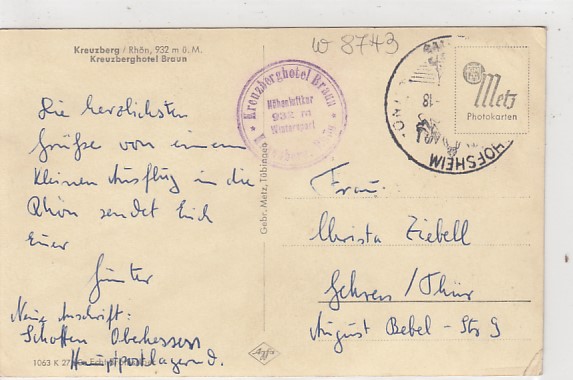 W 8743
Kreuzberg / Rhön, 932 m ü. M.
Kreuzberghotel Braun
Die herzlichsten
Grüße von einem
kleinen Ausflug in die
Rhön sendet Euch
Euer
Günter
Neue Anschrift:
Schotten Oberhessen
Hauptpostlagernd.
1063 K
Gebr. Metz, Tübingen
Kreuzberghotel Braun
Höhenluftkur
932 m
Wintersport
-18
HOFSHEIM
Metz
Photokarten
Frau
Christa Ziebell
Gehren / Thür
August Bebel - Str 9
Agfa